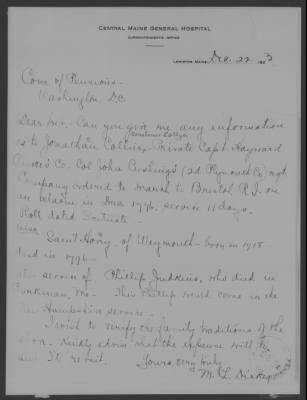 CENTRAL MAINE GENERAL HOSPITAL
SUPERINTENDENT'S OFFICE
LEWISTON, MAINE, Dec. 22 192
Com. of Pensions -
Washington, D.C.
Dear Sir:- Can you give me any information
as to Jonathan Collier, Private Capt. Hayward
Pierce's Co. Col John Cushing's (2d Plymouth Co) rgt.
Company ordered to march to Bristol R.I. on
an alarm in Dec 1776; service 11 days.
Roll dated Scituate.
Also of Weymouth - born in 1718
died in 1796.
Also service of Phillip Judkins, who died in
Parkman, Me. This Phillip would come in the
New Hampshire service.
I wish to verify the family traditions of the
above. Kindly advise what the expense will be
and I'll remit.
Yours very truly
M. L.